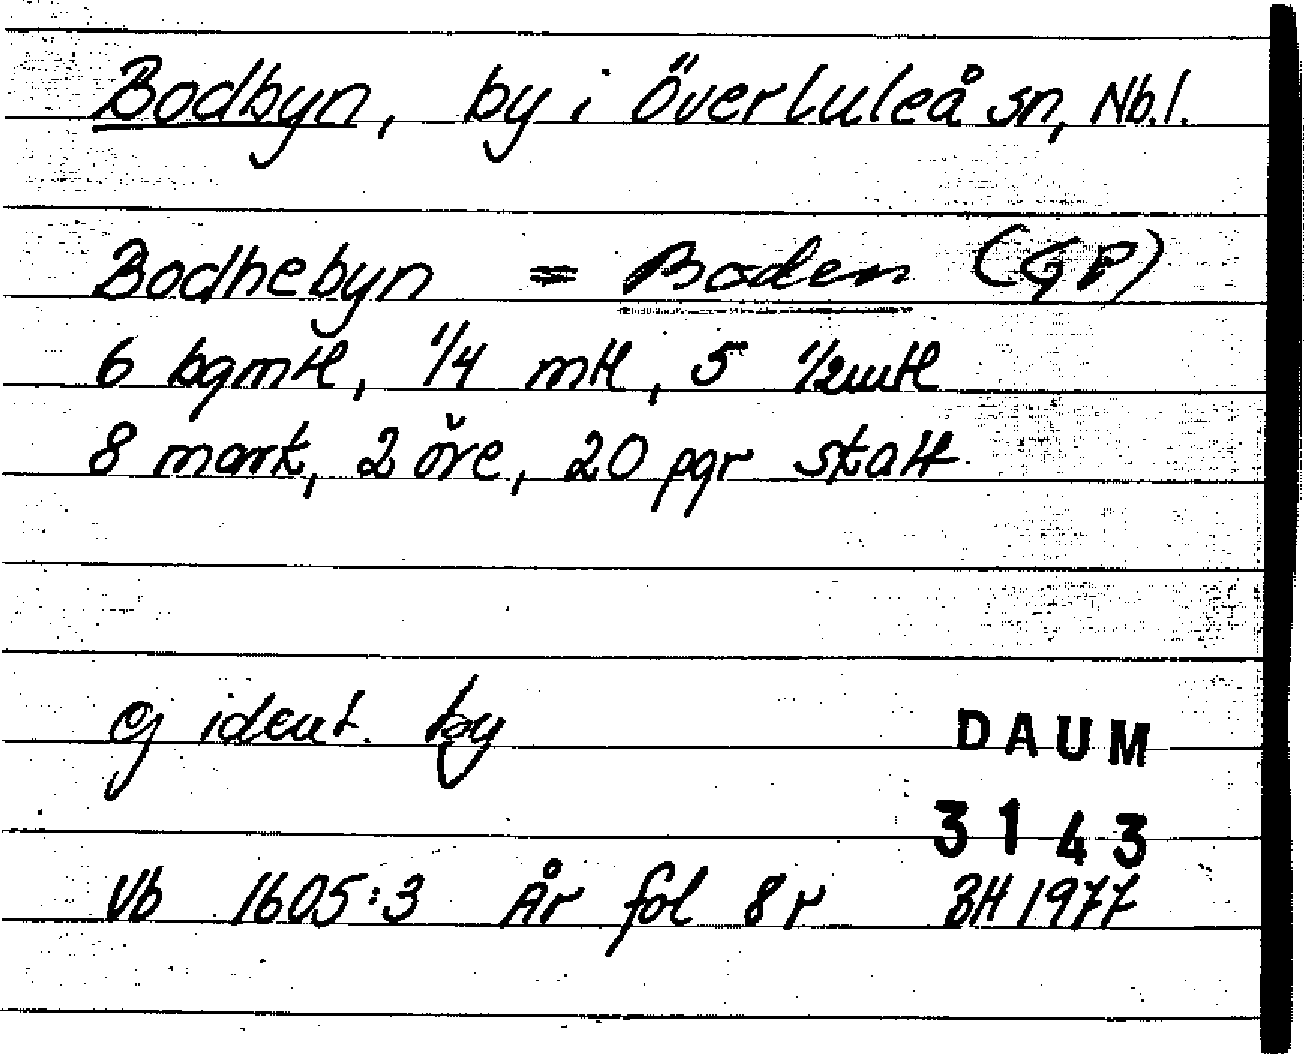 Bodbyn, by i Överluleå sn, Nb.l.
Bodhebyn = Boden (GP)
6 bgmtl, 1/4 mtl, 5 1/2mtl
8 mark, 2 öre, 20 pgr skatt
ej ident. by
DAUM
3143
Vb 1605:3 År fol 8r BH 1977